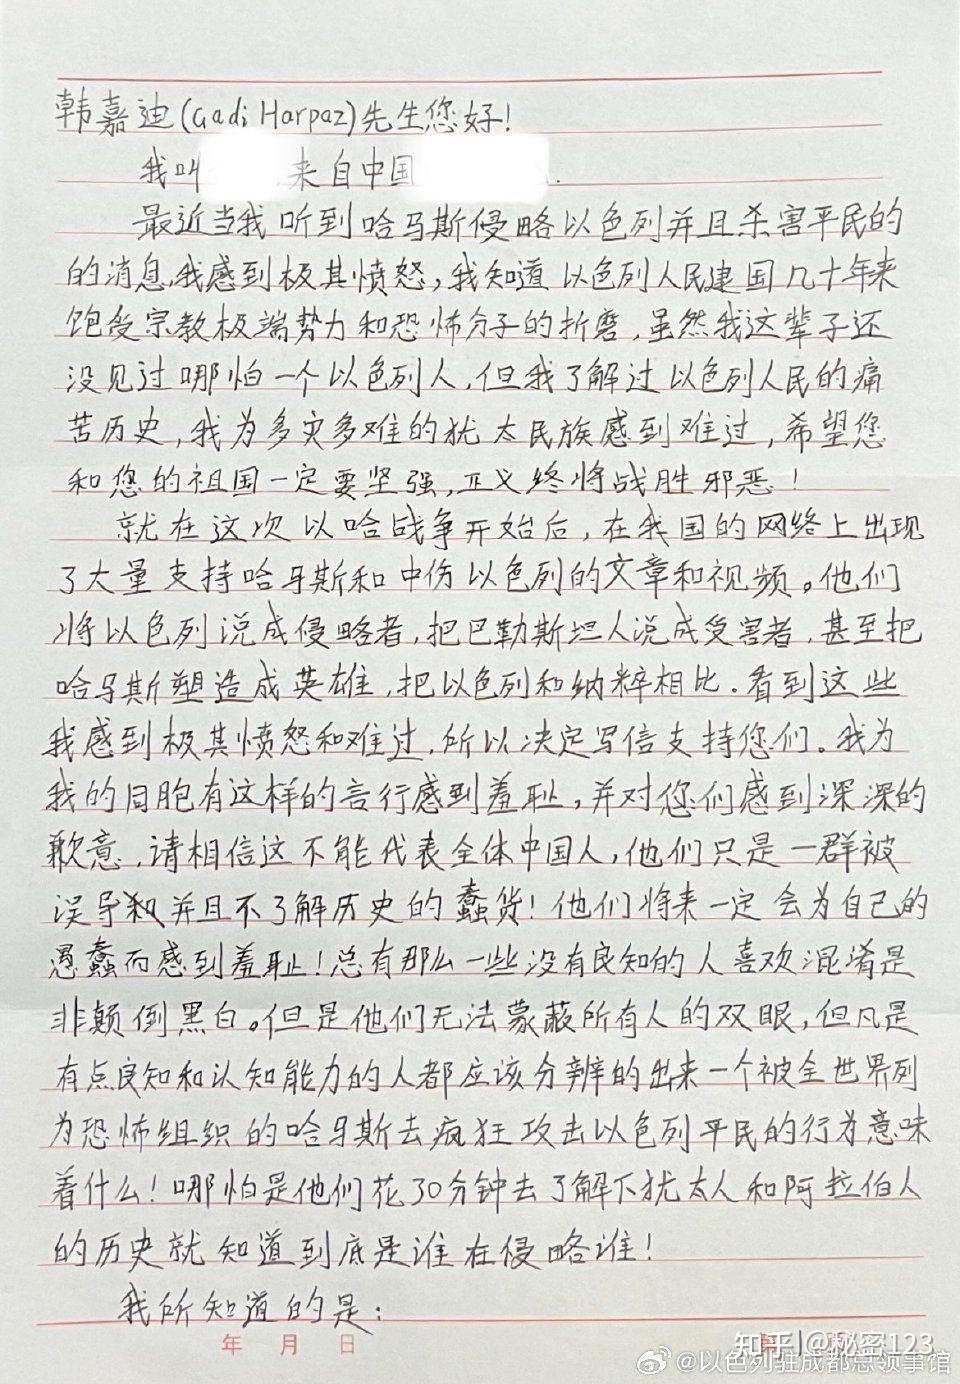 韩嘉迪(Gadi Harpaz)先生您好!
我叫 来自中国 .
最近当我听到哈马斯侵略以色列并且杀害平民的
的消息,我感到极其愤怒,我知道以色列人民建国几十年来
饱受宗教极端势力和恐怖分子的折磨,虽然我这辈子还
没见过哪怕一个以色列人,但我了解过以色列人民的痛
苦历史,我为多灾多难的犹太民族感到难过,希望您
和您的祖国一定要坚强,正义终将战胜邪恶!
就在这次以哈战争开始后,在我国的网络上出现
了大量支持哈马斯和中伤以色列的文章和视频。他们
将以色列说成侵略者,把巴勒斯坦人说成受害者,甚至把
哈马斯塑造成英雄,把以色列和纳粹相比.看到这些
我感到极其愤怒和难过,所以决定写信支持您们。我为
我的同胞有这样的言行感到羞耻,并对您们感到深深的
歉意,请相信这不能代表全体中国人,他们只是一群被
误导和并且不了解历史的蠢货!他们将来一定会为自己的
愚蠢而感到羞耻!总有那么一些没有良知的人喜欢混淆是
非颠倒黑白。但是他们无法蒙蔽所有人的双眼,但凡是
有点良知和认知能力的人都应该分辨的出来一个被全世界列
为恐怖组织的哈马斯去疯狂攻击以色列平民的行为意味
着什么!哪怕是他们花30分钟去了解下犹太人和阿拉伯人
的历史就知道到底是谁在侵略谁!
我所知道的是:
年 月 日
知乎 @秘密123
@以色列驻成都总领事馆